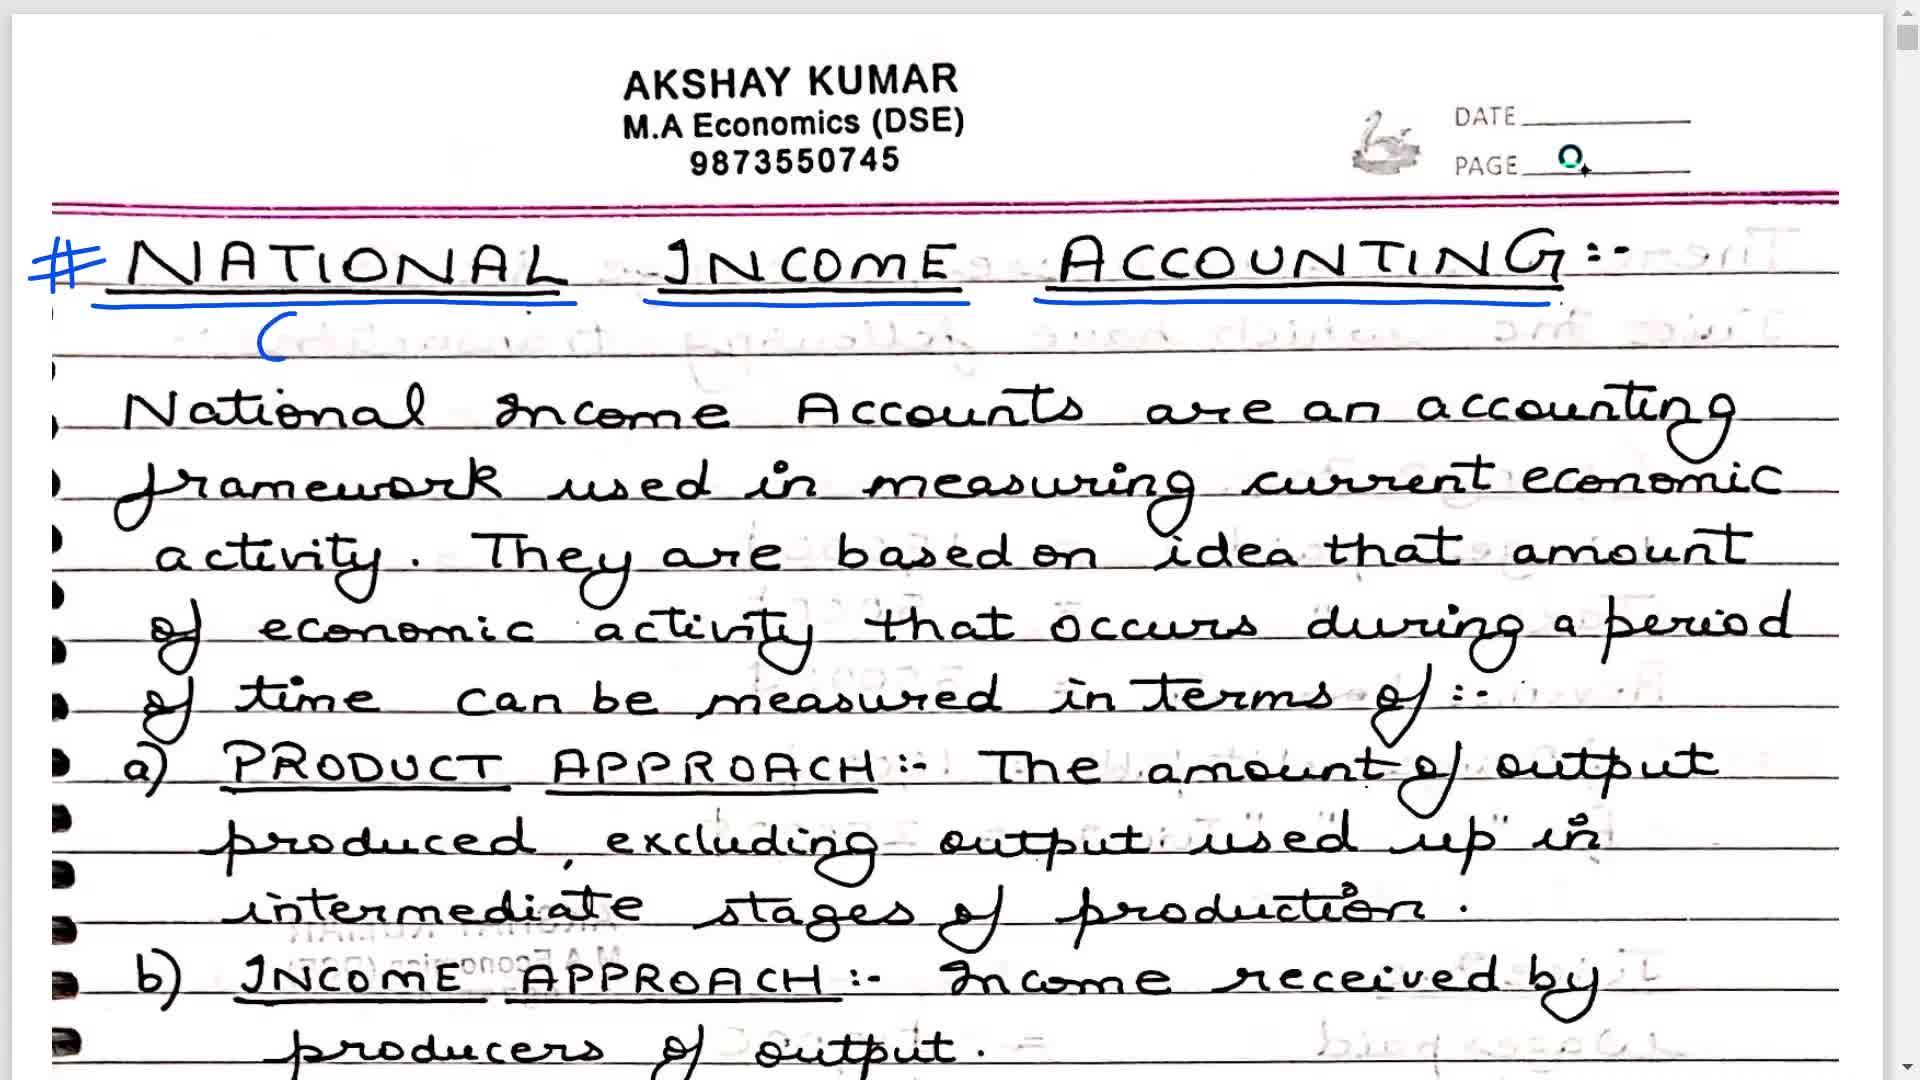 AKSHAY KUMAR
M.A Economics (DSE)
9873550745
DATE
PAGE
# NATIONAL INCOME ACCOUNTING :-
National Income Accounts are an accounting
framework used in measuring current economic
activity. They are based on idea that amount
of economic activity that occurs during a period
of time can be measured in terms of :-
a) PRODUCT APPROACH :- The amount of output
produced, excluding output used up in
intermediate stages of production.
b) INCOME APPROACH :- Income received by
producers of output.